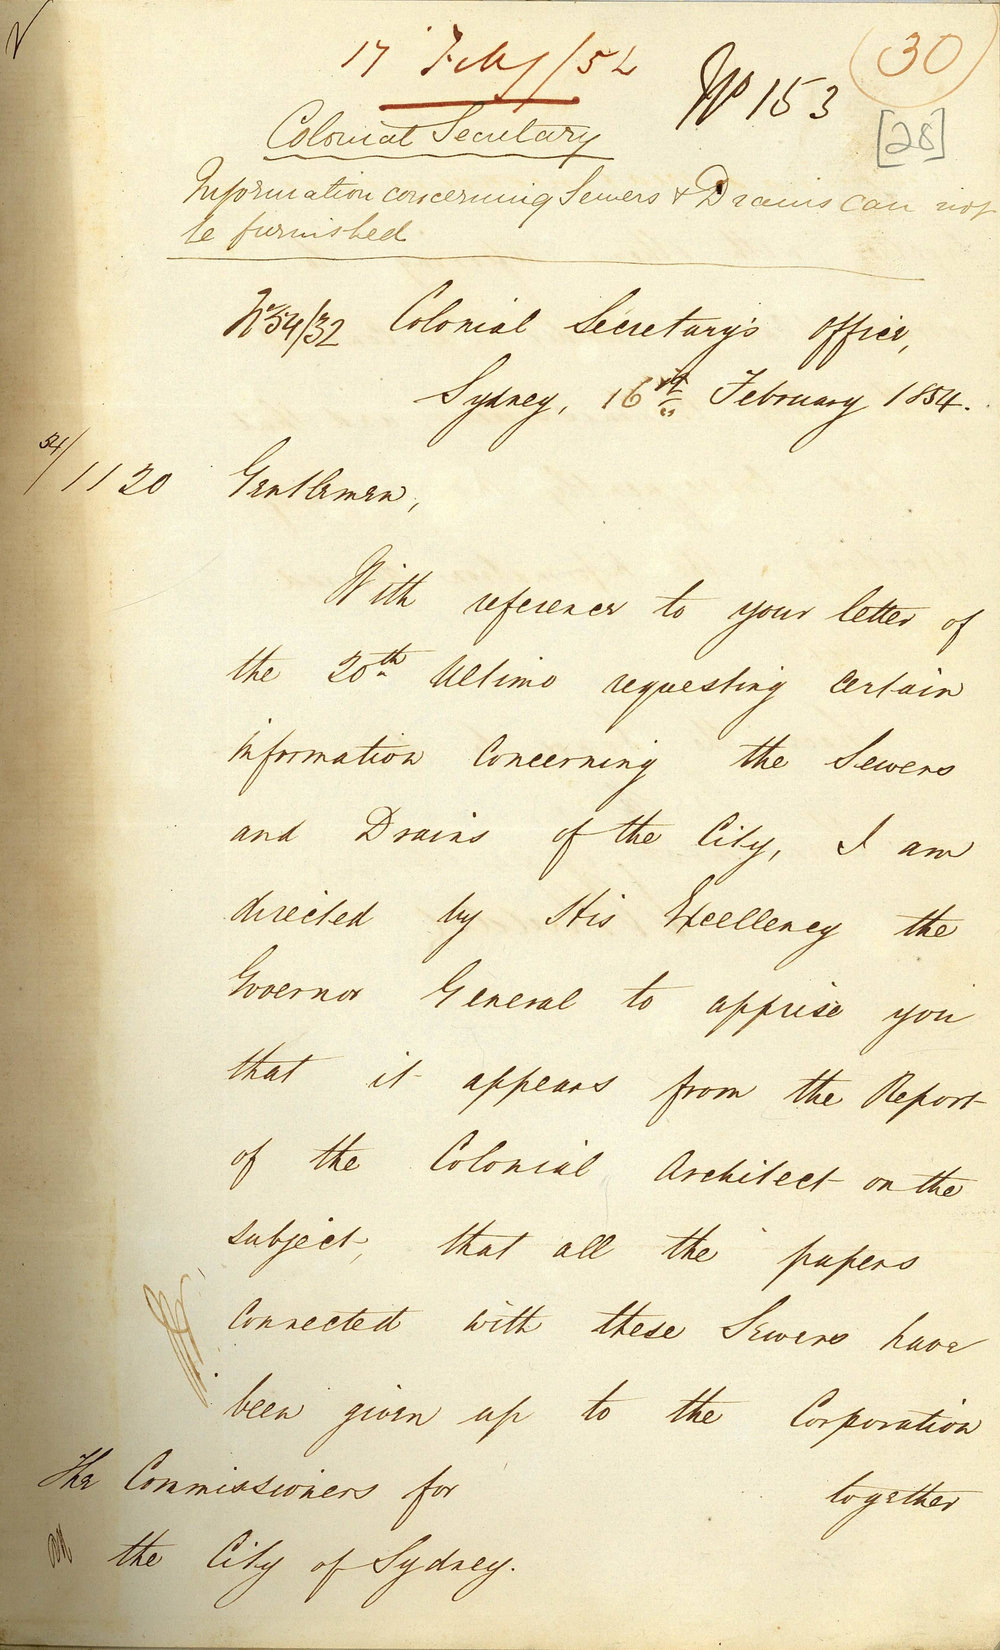 17 Feby/54
No 153
30
[28]
Colonial Secretary
Information concerning Sewers & Drains can not
be furnished
No 54/32 Colonial Secretary's Office,
Sydney, 16th February 1854.
54/1120 Gentlemen,
With reference to your letter of
the 20th Ultimo requesting certain
information concerning the Sewers
and Drains of the City, I am
directed by His Excellency the
Governor General to apprise you
that it appears from the Report
of the Colonial Architect on the
subject, that all the papers
connected with these Sewers have
been given up to the Corporation
together
The Commissioners for
the City of Sydney.